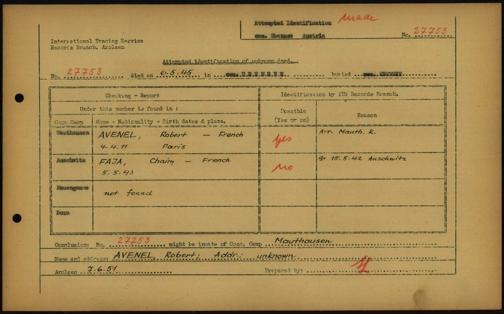 Attempted Identification made
cem. Ebensee Austria No. 27253
International Tracing Service
Records Branch, Arolsen
Attempted identification of unknown dead.
No. 27253 died on 0.5.45 in cem. EBENSEE buried cem. EBENSEE
Checking - Report Identifications by ITS Records Branch.
Under this number is found in :
Conc Camp Name - Nationality - Birth dates & place. Possible (Yes or no) Reason
Mauthausen AVENEL, Robert - French yes Arr. Mauth. K.
4.4.11 Paris
Auschwitz FAJA, Chaim - French no 15.5.42 Auschwitz
5.5.93
Neuengamme not found
Conclusions No. 27253 might be inmate of Conc. Camp Mauthausen
Name and address: AVENEL, Robert; Addr: unknown
Arolsen 7.6.51 Prepared by: